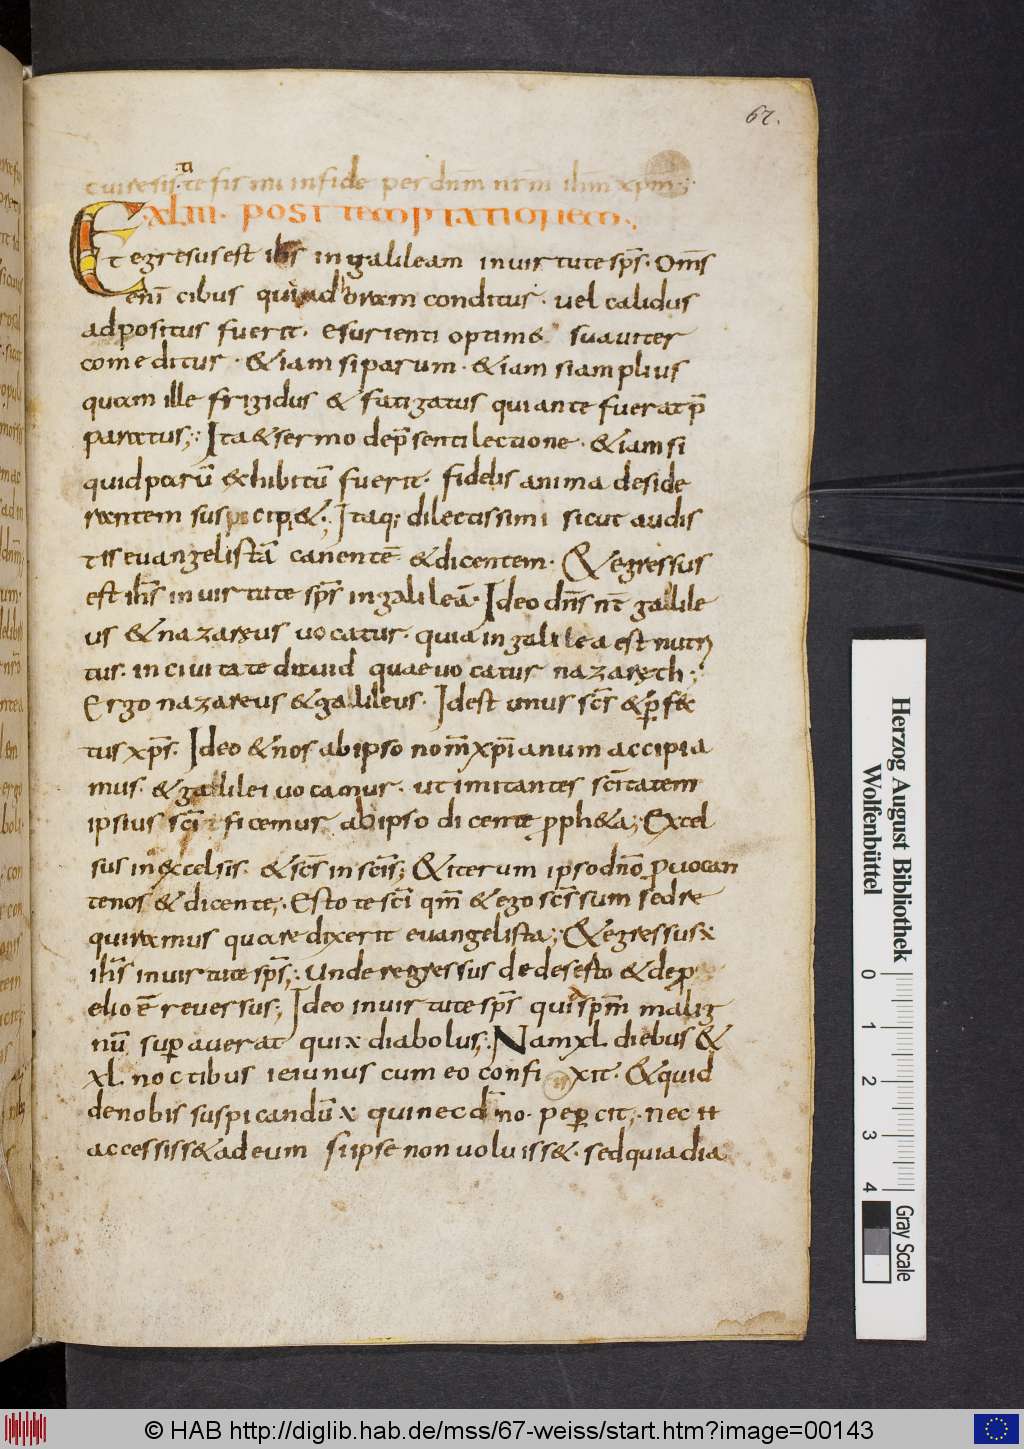 67.
resis te firmi in fide per dn̄m nr̄m ih̄m xp̄m;
XLIII. POST TEMPTATIONEM.
Et egresus est ih̄s in galileam in uirtute sp̄s. Om̄s
enī cibus qui ad horam conditus. uel calidus
adpositus fuerit. esurienti optime suauiter
comeditur. &iam si parum. &iam si amplius
quam ille frigidus & fatigatus qui ante fuerat p̄
paratus; Ita & sermo de p̄senti lectione. &iam si
quid parū exhibitū fuerit. fidelis anima deside
rantem suscipi&; Itaq; dilectissimi sicut audis
tis euangelistā canentē & dicentem. Et egressus
est ih̄s in uirtute sp̄s in galileā. Ideo dn̄s nr̄ galile
us & nazareus uocatur. quia in galilea est nutri
tus. in ciuitate dauid quae uocatur nazareth;
Ergo nazareus & galileus. Id est unus sc̄s & perfec
tus xp̄s. Ideo & nos ab ipso nom̄ xp̄ianum accipia
mus. & galilei uocamur. ut imitantes sc̄itatem
ipsius sc̄ificemur ab ipso dicente pph&a; Excel
sus in excelsis. & sc̄s in sc̄is; &iterum ipso dn̄o ꝓuocan
te nos & dicente; Estote sc̄i qm̄ & ego sc̄s sum sed re
quiramus quare dixerit euangelista; & egressus ÷
ih̄s in uirtute sp̄s; Unde regressus de deserto & de pr
elio ē reuersus; Ideo in uirtute sp̄s quia sp̄m malig
nū superauerat qui ÷ diabolus; Nam XL diebus &
XL noctibus ieiunus cum eo confixit. &quid
de nobis suspicandū ÷ qui nec dn̄o pepercit; nec
accessiss& ad eum si ipse non uoluiss&. sed quia dia
Herzog August Bibliothek
Wolfenbüttel
0 1 2 3 4
Gray Scale
© HAB http://diglib.hab.de/mss/67-weiss/start.htm?image=00143